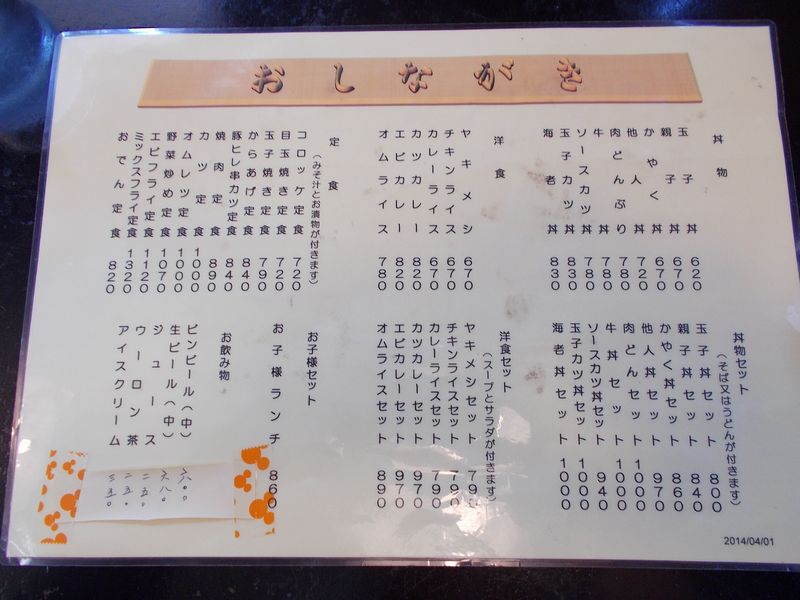 おしながき
丼物
玉子丼 620
親子丼
かやく丼 670
他人丼 720
肉どんぶり 780
牛丼 780
ソースカツ丼 780
玉子カツ丼 830
海老丼 830
洋食
ヤキメシ 670
チキンライス 670
カレーライス 670
カツカレー 820
エビカレー 820
オムライス 780
定食
(みそ汁とお漬物が付きます)
コロッケ定食 720
目玉焼き定食 720
玉子焼き定食 790
からあげ定食 840
豚ヒレ串カツ定食 840
焼肉定食 890
カツ定食 1000
オムレツ定食 1000
野菜炒め定食 1070
エビフライ定食 1120
ミックスフライ定食 1320
おでん定食 820
丼物セット
(そば又はうどんが付きます)
玉子丼セット 800
親子丼セット 840
かやく丼セット 860
他人丼セット 970
肉どんセット 1000
牛丼セット 1000
ソースカツ丼セット 940
玉子カツ丼セット 1000
海老丼セット 1000
洋食セット
(スープとサラダが付きます)
ヤキメシセット 790
チキンライスセット 790
カレーライスセット 790
カツカレーセット 970
エビカレーセット 970
オムライスセット 890
お子様セット
お子様ランチ 860
お飲み物
ビンビール(中) 六〇〇
生ビール(中) 六八〇
ジュース 二五〇
ウーロン茶 二五〇
アイスクリーム 三五〇
2014/04/01